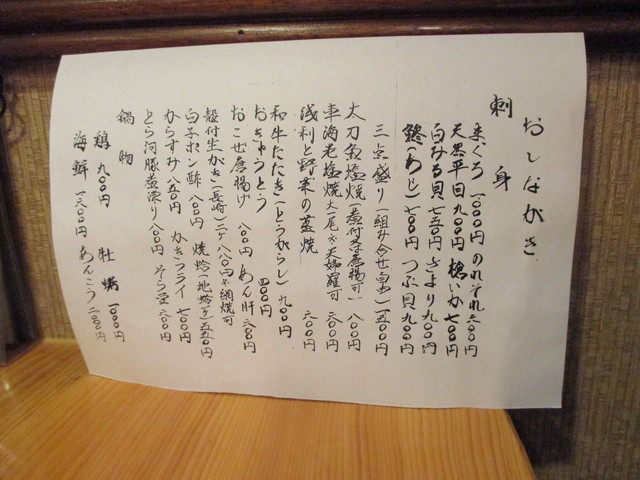 おしながき
刺身
まぐろ 一、〇〇〇円 のれそれ 六〇〇円
天然平目 九〇〇円 槍いか 七〇〇円
白みる貝 七五〇円 さより 九〇〇円
鯵(あじ) 七〇〇円 つぶ貝 九〇〇円
三点盛り(組み合せ自由) 一、五〇〇円
太刀魚塩焼(煮付又は唐揚可) 一、八〇〇円
車海老塩焼 大一尾 又は 天婦羅可
浅利と野菜の蒸焼 六〇〇円
和牛たたき(とうがらし) 九〇〇円
おきゅうとう 四〇〇円
おこぜ唐揚げ 八〇〇円 あん肝 六〇〇円
殻付生がき(長崎)二ケ 八八〇円 又は 網焼可
白子ポン酢 八〇〇円 焼蛤(地蛤ケ) 五五〇円
からすみ 八五〇円 かきフライ 七〇〇円
とら河豚煮凍り 八〇〇円 そら豆 六〇〇円
鍋物
鶏 九〇〇円 牡蠣 一、〇〇〇円
海鮮 一、六〇〇円 あんこう 二、〇〇〇円